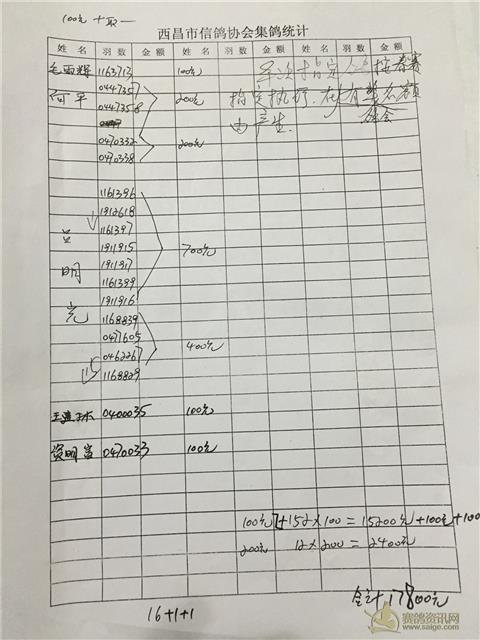 100元十取一
西昌市信鸽协会集鸽统计
姓名 羽数 金额 姓名 羽数 金额 姓名 羽数 金额
1163713 100元
何平 0447357
0447358 200元
0470332
0470338 200元
单次指定 按春赛
指定执行.在有单众额
由产生.
1161396
1912618
1161397
1911915
1911917 700元
1161399
1911916
吕明光
1168839
0477605
0462267 400元
1168829
15
0400035 100元
资明富 0470033 100元
100元 1+152×100=15200元+100元+100
200元 12×200=2400元
合计17800元
16+1+1
赛鸽资讯网
www.saige.com